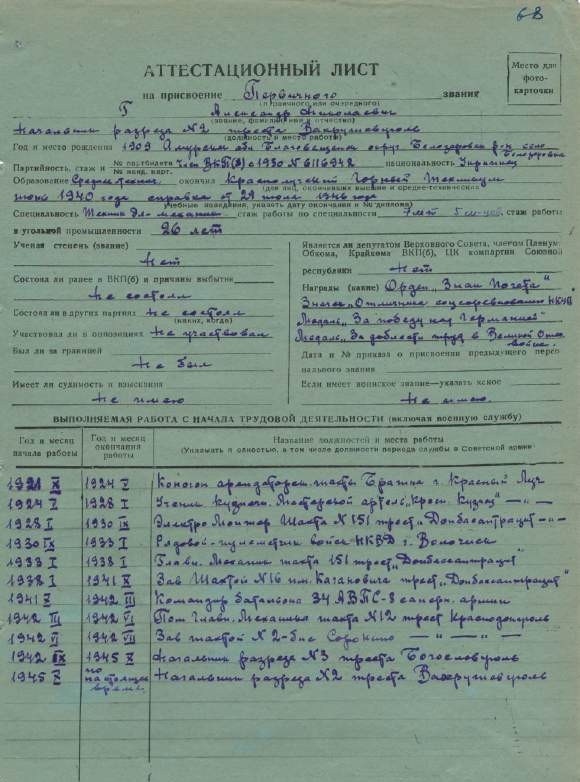 68
АТТЕСТАЦИОННЫЙ ЛИСТ
Место для фото-карточки
на присвоение Первичного звания
(первичного или очередного)
Г Александр Николаевич
(звание, фамилия, имя и отчество)
Начальник разреза №2 треста Вахрушевуголь
(должность и место работы)
Год и место рождения 1909 Амурская обл Благовещенск округ Белозеровка р-он село Белозеровка
Партийность, стаж и № партбилета № канд. карт. Член ВКП(б) с 1930 № 6116942 национальность Украинец
Образование Средне-техн. окончил Краснолучский Горный Техникум
(для лиц, окончивших высшие и средне-технические
июнь 1940 года справка от 29 июля 1946 год
учебные заведения, указать дату окончания и № диплома)
Специальность Техник эл-механик стаж работы по специальности 7 лет 5 м-цев, стаж работы
в угольной промышленности 26 лет
Ученая степень (звание)
Нет
Состоял ли ранее в ВКП(б) и причины выбытия
Не состоял
Состоял ли в других партиях не состоял
(каких, когда)
Участвовал ли в оппозициях Не участвовал
Был ли за границей
Не был
Имеет ли судимость и взыскания
Не имею
Является ли депутатом Верховного Совета, членом Пленума
Обкома, Крайкома ВКП(б), ЦК компартии Союзной
республики Нет
Награды (какие) Орден „Знак Почета“
Значек „Отличник соцсоревнования НКУП
Медаль „За победу над Германией“
Медаль „За доблестн труд в Великой Отеч войне.
Дата и № приказа о присвоении предыдущего персо
нального звания
Если имеет воинское звание—указать какое
Не имею.
ВЫПОЛНЯЕМАЯ РАБОТА С НАЧАЛА ТРУДОВОЙ ДЕЯТЕЛЬНОСТИ (включая военную службу)
Год и месяц начала работы
Год и месяц окончания работы
Название должностей и места работы
(Указывать полностью, в том числе должности периода службы в Советской армии)
1921 IX 1924 V Коногон арендаторск. шахты Брагина г. Красный Луч
1924 V 1928 I Ученик кузнечн. Мастерской артель „Красн. Кузнец“ —„—
1928 I 1930 IX Электро Монтер Шахта №151 трест „Донбассантрацит“ —„—
1930 IX 1933 I Рядовой-пулеметчик войск НКВД г. Волочиск
1933 I 1938 I Главн. Механик шахта 151 трест „Донбассантрацит“
1938 I 1941 X Зав Шахтой №16 им. Кагановича трест „Донбассантрацит“
1941 X 1942 III Командир батальона 34 АВПС-8 саперн. армии
1942 III 1942 VI Пом Главн. Механика шахта №12 трест Краснодонуголь
1942 VI 1942 VII Зав шахтой №2-бис Сорокино —„— —„—
1942 IX 1945 X Начальник разреза №3 треста Богословуголь
1945 X по настоящее время. Начальник разреза №2 треста Вахрушевуголь